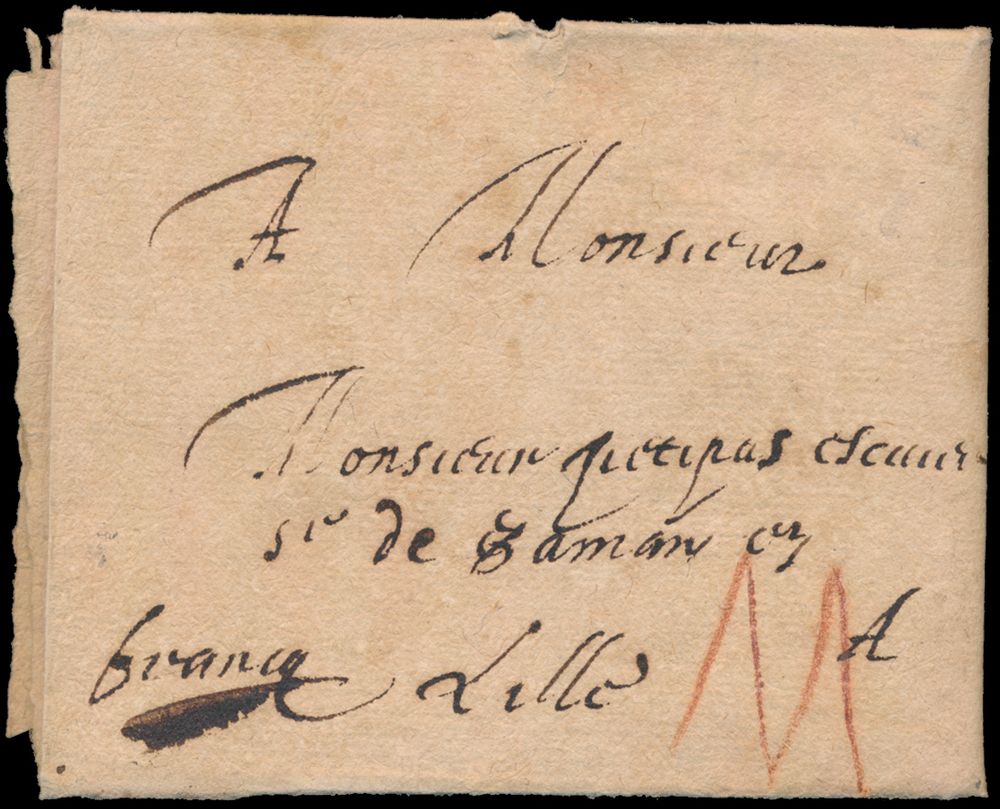 A Monsieur
Monsieur petipas escuier
sr de gaman et
A
francq Lille